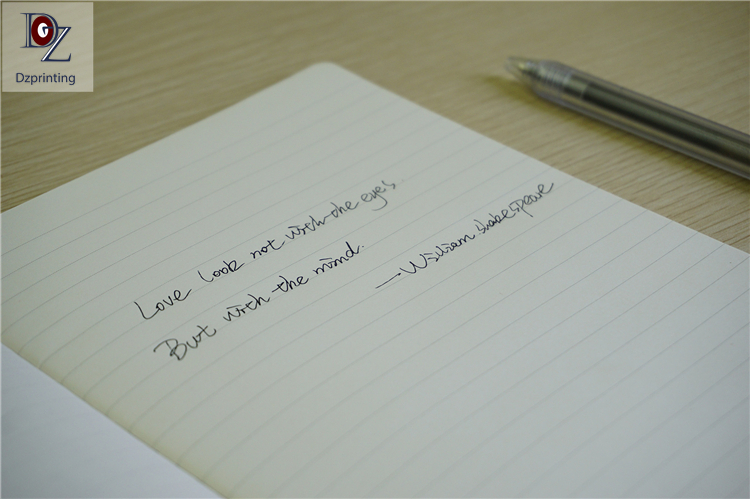 DGZ
Dzprinting
Love look not with the eyes.
But with the mind.
—William shakespeare